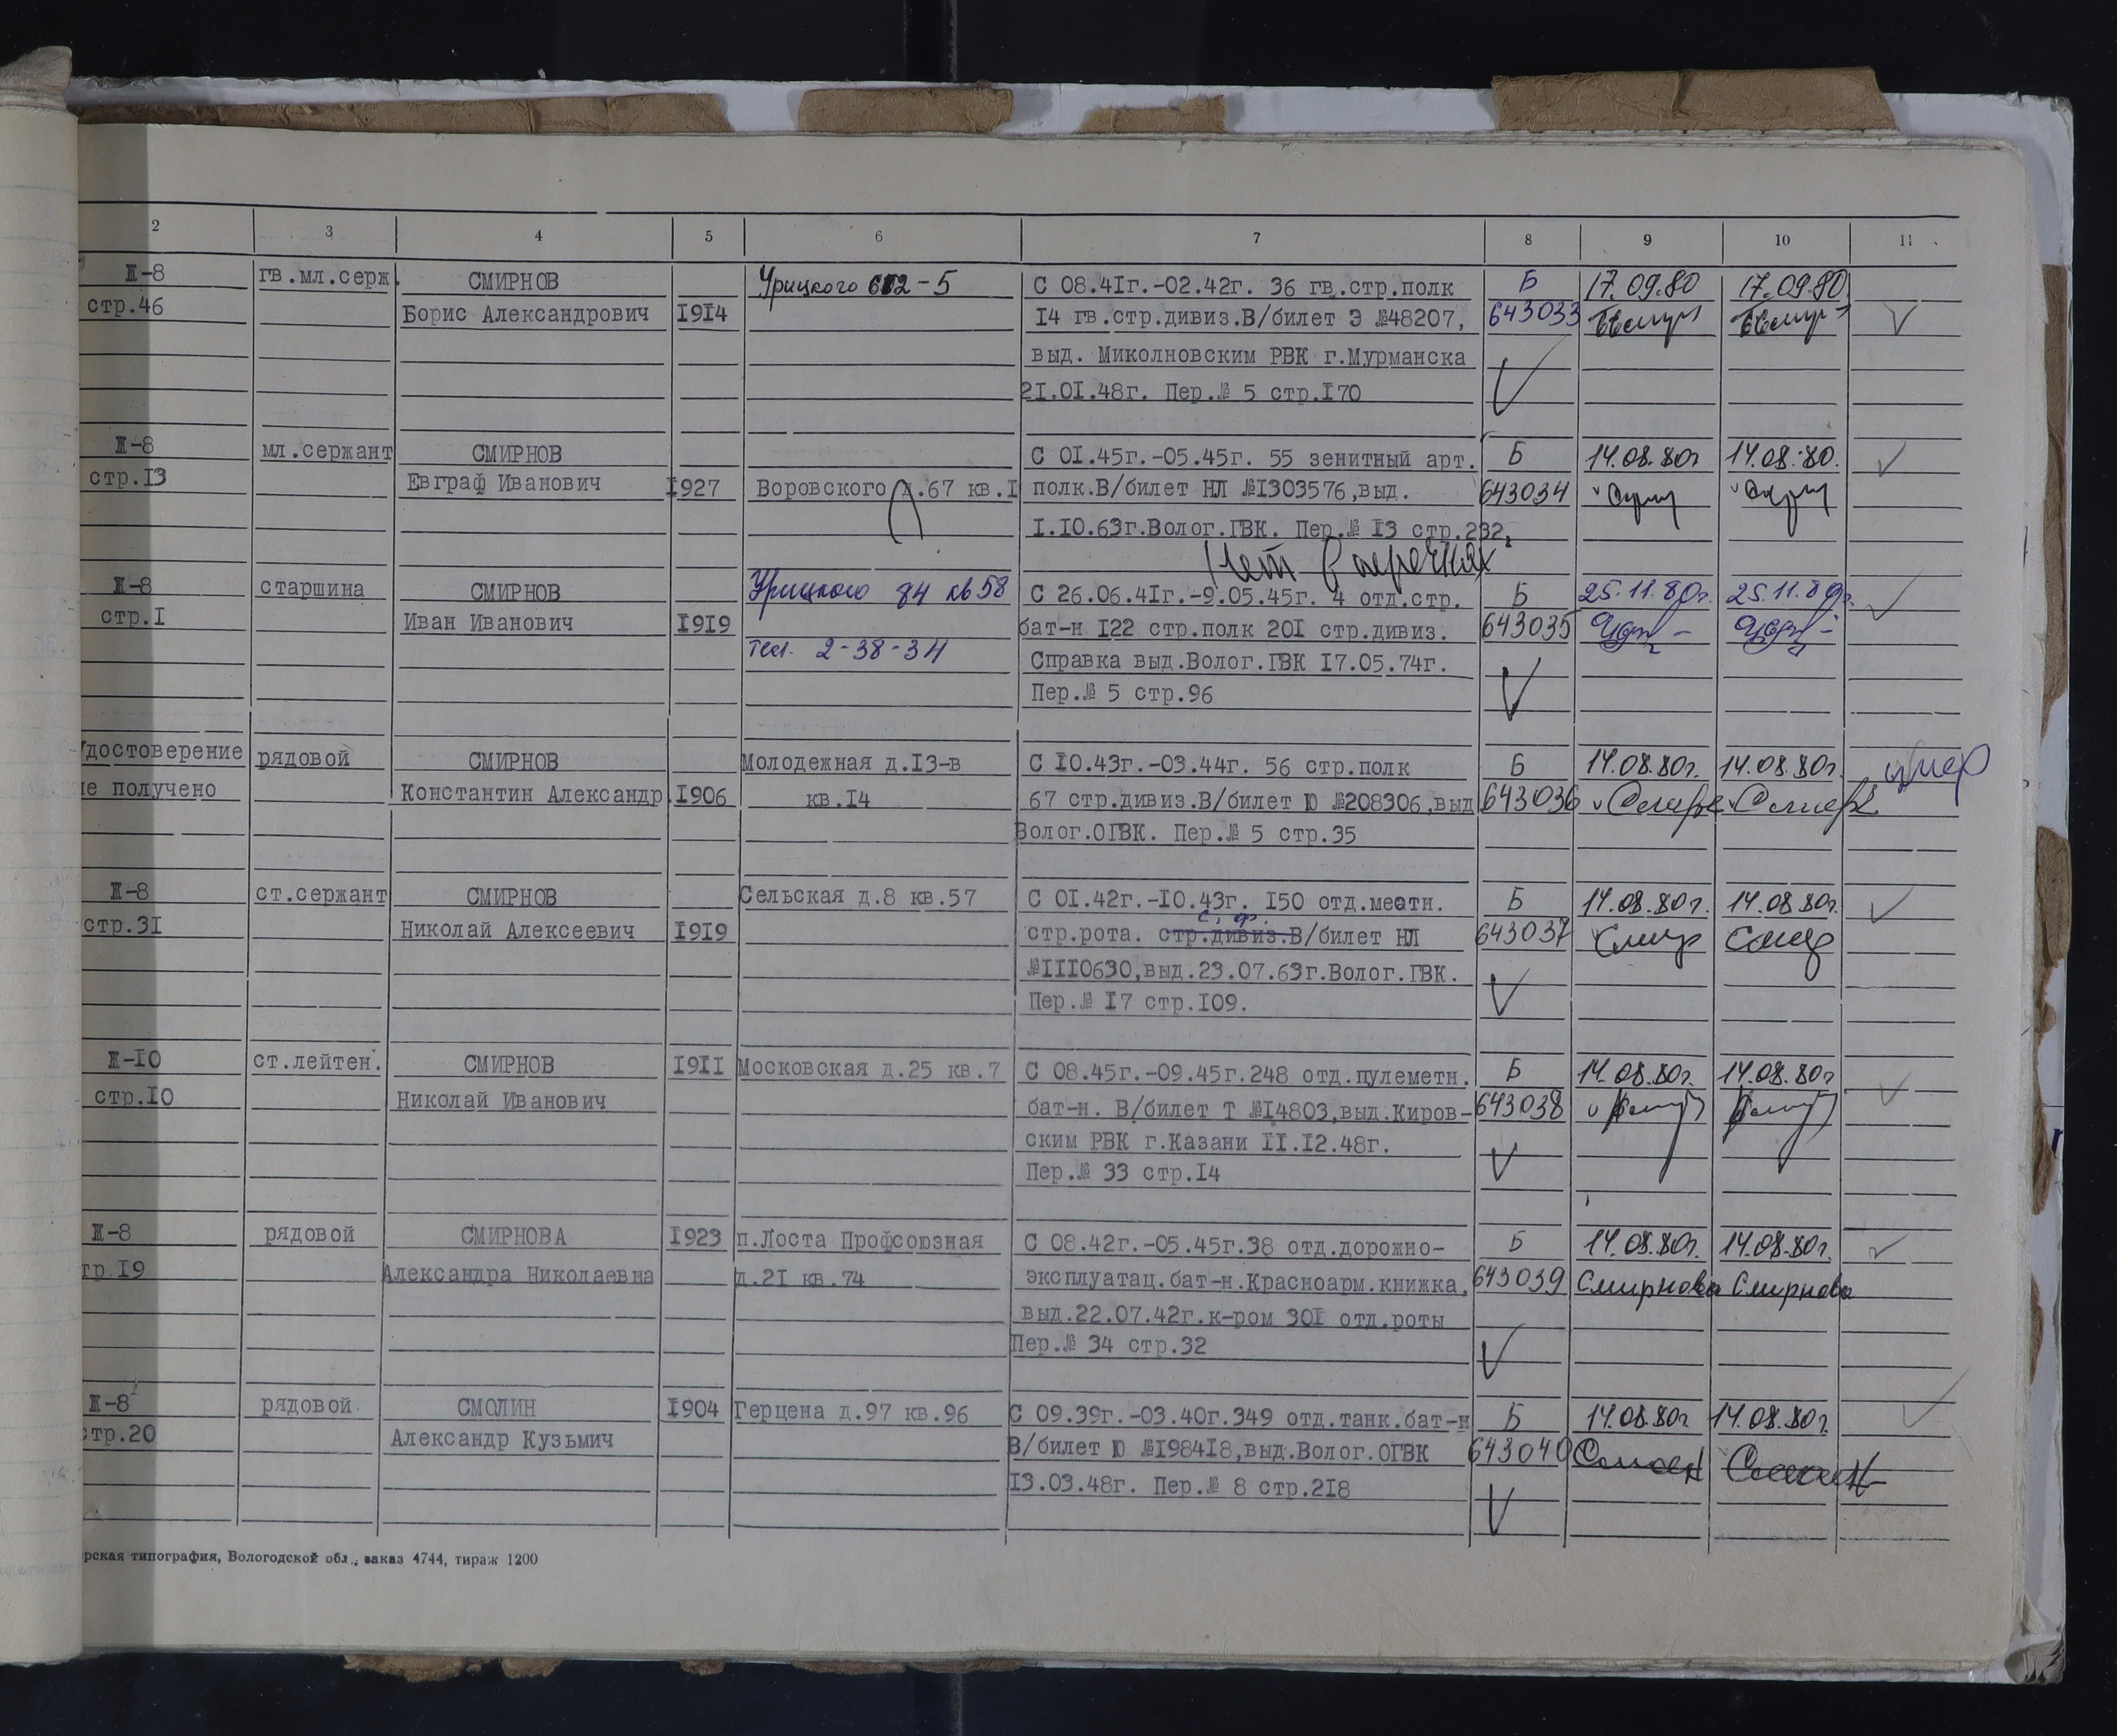 2 3 4 5 6 7 8 9 10 11
Ж-8 гв.мл.серж. СМИРНОВ Урицкого -5 С 08.41г.-02.42г. 36 гв.стр.полк Б 17.09.80 17.09.80
стр.46 Борис Александрович 1914 14 гв.стр.дивиз.В/билет Э №48207, 643033
выд. Миколновским РВК г.Мурманска
21.01.48г. Пер.№ 5 стр.170
Ж-8 мл.сержант СМИРНОВ С 01.45г.-05.45г. 55 зенитный арт. Б 14.08.80г 14.08.80.
стр.13 Евграф Иванович 1927 Воровского д.67 кв.1 полк.В/билет НЛ №1303576,выд. 643034
1.10.63г.Волог.ГВК. Пер.№ 13 стр.232,
Нет в перечнях
Ж-8 старшина СМИРНОВ Урицкого 84 кв 58 С 26.06.41г.-9.05.45г. 4 отд.стр. Б 25.11.80г. 25.11.80г.
стр.1 Иван Иванович 1919 бат-н 122 стр.полк 201 стр.дивиз. 643035
тел. 2-38-34 Справка выд.Волог.ГВК 17.05.74г.
Пер.№ 5 стр.96
Удостоверение рядовой СМИРНОВ Молодежная д.13-в С 10.43г.-03.44г. 56 стр.полк Б 14.08.80г. 14.08.80г. умер
не получено Константин Александр. 1906 кв.14 67 стр.дивиз.В/билет Ю №208306,выд 643036
Волог.ОГВК. Пер.№ 5 стр.35
Ж-8 ст.сержант СМИРНОВ Сельская д.8 кв.57 С 01.42г.-10.43г. 150 отд.местн. Б 14.08.80г. 14.08.80г.
с. ф.
стр.31 Николай Алексеевич 1919 стр.рота. стр.дивиз.В/билет НЛ 643037 Смир Смир
№1110630,выд.23.07.63г.Волог.ГВК.
Пер.№ 17 стр.109.
Ж-10 ст.лейтен. СМИРНОВ 1911 Московская д.25 кв.7 С 08.45г.-09.45г.248 отд.пулеметн. Б 14.08.80г. 14.08.80г
стр.10 Николай Иванович бат-н. В/билет Т №14803,выд.Киров- 643038
ским РВК г.Казани 11.12.48г.
Пер.№ 33 стр.14
Ж-8 рядовой СМИРНОВА 1923 п.Лоста Профсоюзная С 08.42г.-05.45г.38 отд.дорожно- Б 14.08.80г. 14.08.80г.
тр 19 Александра Николаевна д.21 кв.74 эксплуатац.бат-н.Красноарм.книжка, 643039 Смирнова Смирнова
выд.22.07.42г.к-ром 301 отд.роты
Пер.№ 34 стр.32
Ж-8 рядовой. СМОЛИН 1904 Герцена д.97 кв.96 С 09.39г.-03.40г.349 отд.танк.бат-н Б 14.08.80г. 14.08.80г.
стр.20 Александр Кузьмич В/билет Ю №198418,выд.Волог.ОГВК 643040
13.03.48г. Пер.№ 8 стр.218
рская типография, Вологодской обл., заказ 4744, тираж 1200